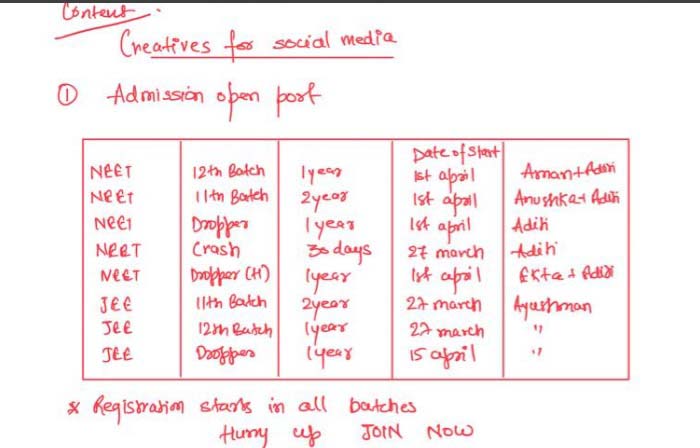 Content.
Creatives for social media
① Admission open post
Date of Start
NEET 12th Batch 1 year 1st april Aman + Aditi
NEET 11th Batch 2 year 1st april Anushka + Aditi
NEET Dropper 1 year 1st april Aditi
NEET Crash 30 days 27 march Aditi
NEET Dropper (H) 1 year 1st april Ekta + Aditi
JEE 11th Batch 2 year 27 march Ayushman
JEE 12th Batch 1 year 27 march "
JEE Dropper 1 year 15 april "
* Registration starts in all batches
Hurry up JOIN NOW